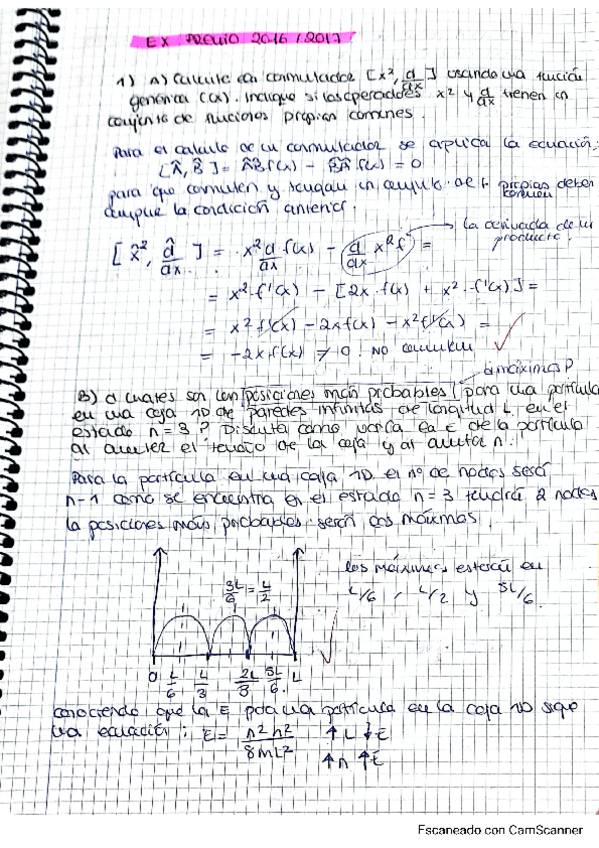 EX PREVIO 2016/2017
1) A) Calcule el conmutador [x², d/dx] usando una función
genérica f(x). Indique si los operadores x² y d/dx tienen un
conjunto de funciones propias comunes.
Para el cálculo de un conmutador se aplica la ecuación:
[Â, B̂] = ÂB̂ f(x) - B̂Â f(x) = 0
para que conmuten y tengan un conjunto de f. propias deben
cumplir la condición anterior.
la derivada de un
producto.
[x̂², d̂/dx] = x² d/dx f(x) - d/dx x² f =
= x² · f'(x) - [2x · f(x) + x² · f'(x)] =
= x² f'(x) - 2x f(x) - x² f'(x) =
= -2x f(x) ≠ 0. NO conmutan
máximos P
B) d cuáles son las posiciones más probables para una partícula
en una caja 1D de paredes infinitas de longitud L, en el
estado n=3? Discuta cómo varía la E de la partícula
al aumentar el tamaño de la caja y al aumentar n.
Para la partícula en una caja 1D el nº de nodos será
n-1 como se encuentra en el estado n=3 tendrá 2 nodos
la posiciones más probables serán los máximos.
3L/6 = L/2
los máximos estarán en
L/6, L/2 y 5L/6.
0 L/6 L/3 2L/3 5L/6 L
conociendo que la E para una partícula en la caja 1D sigue
una ecuación: E = n²h²/8mL² ↑L ↓E
↑n ↑E
Escaneado con CamScanner